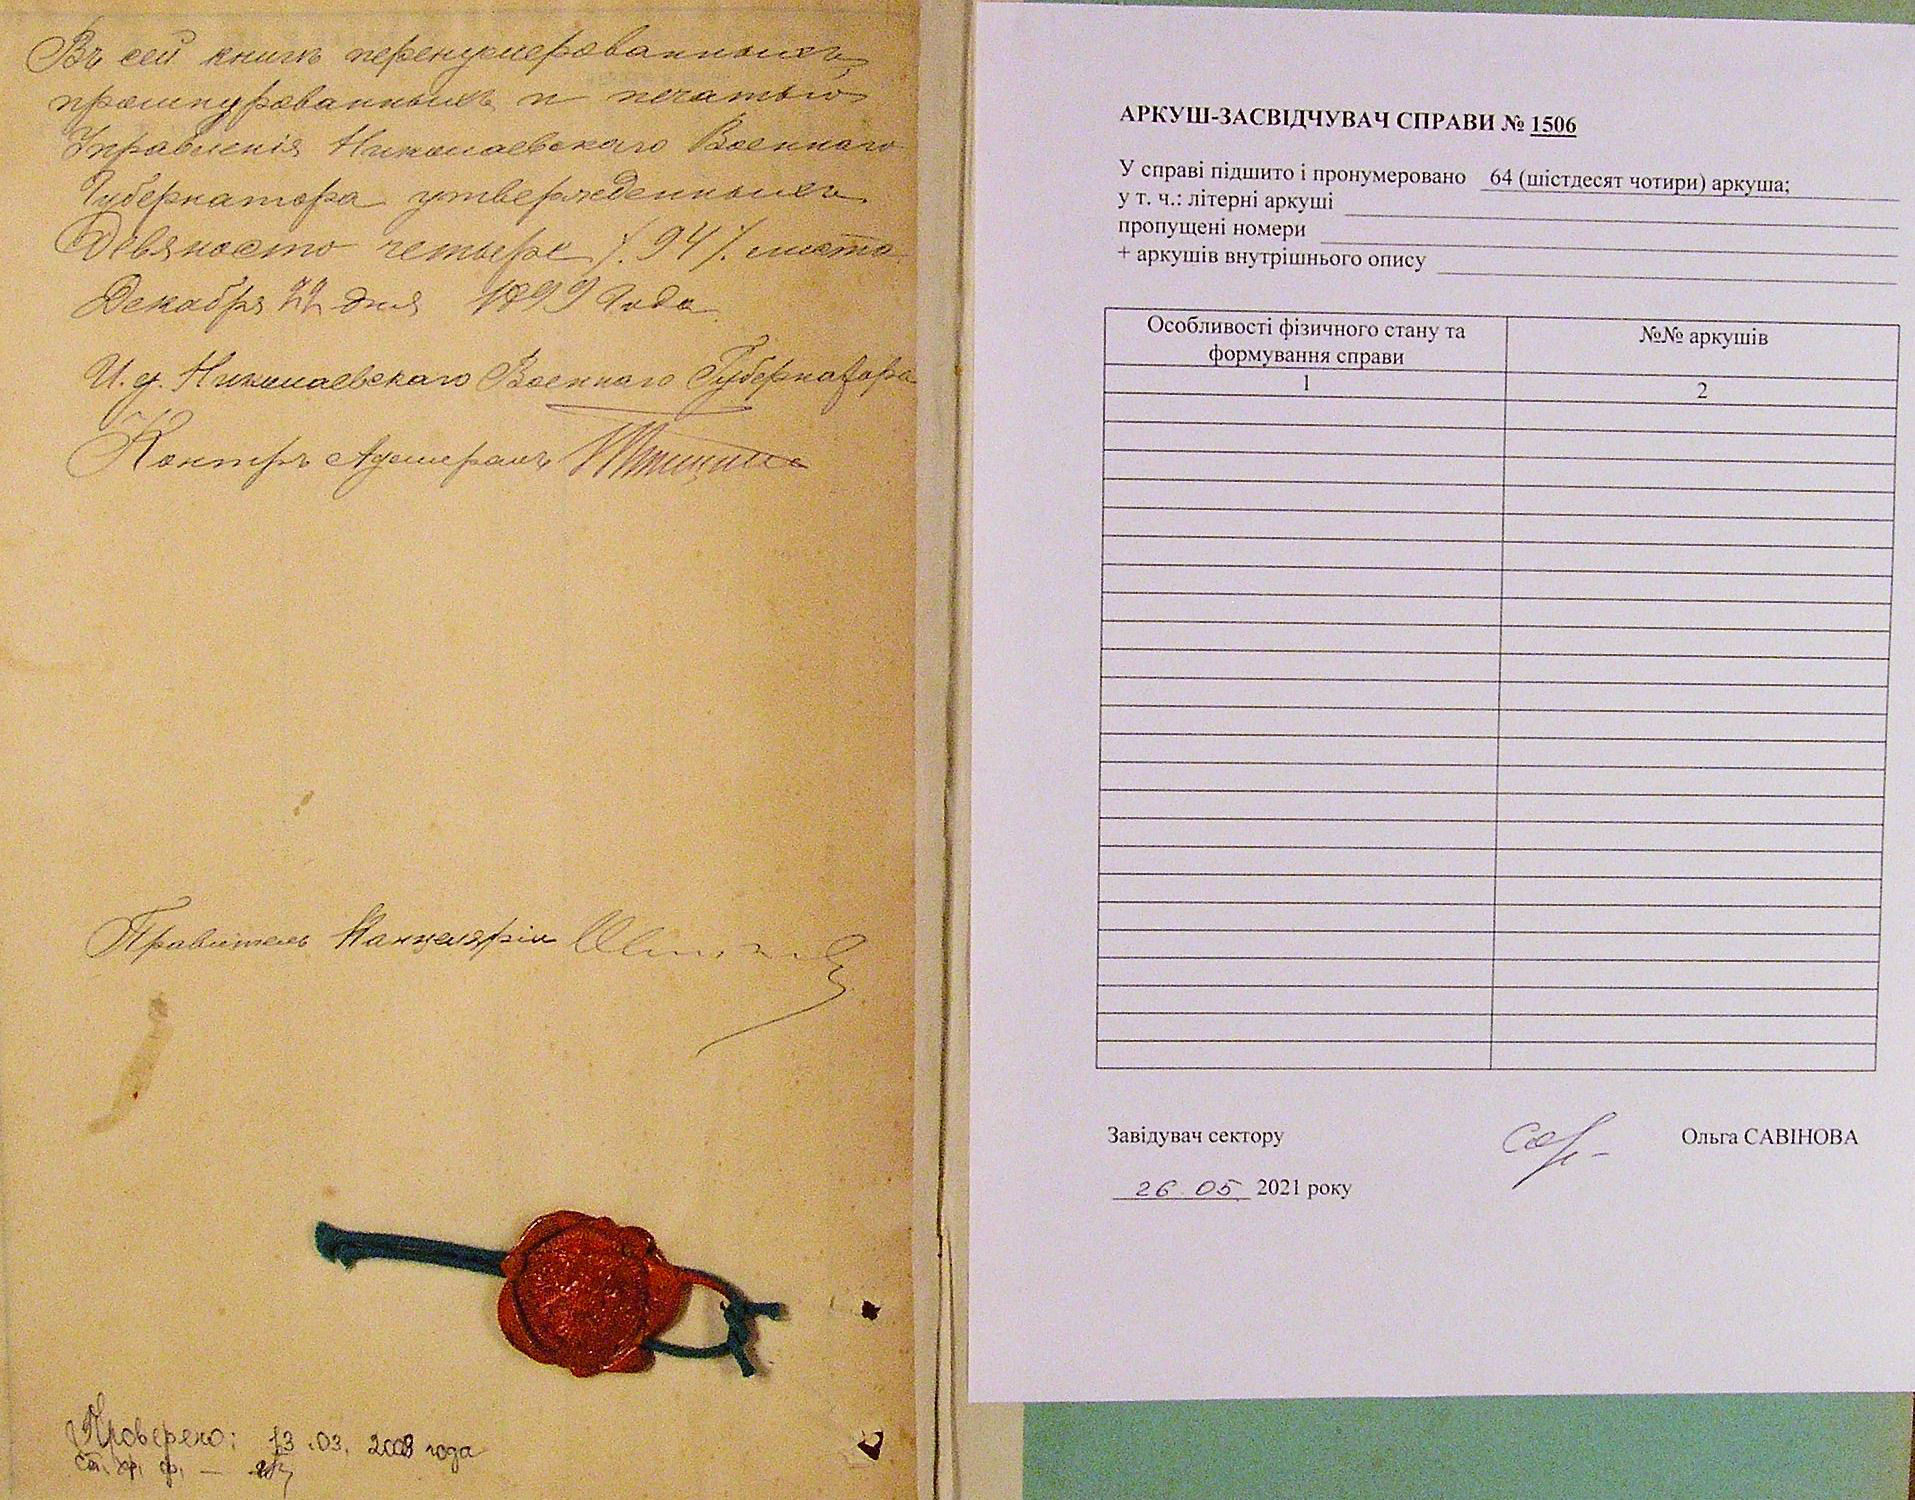 Въ сей книгѣ перенумерованныхъ,
прошнурованныхъ и печатью
Управленія Николаевскаго Военнаго
Губернатора утвержденныхъ
Девяносто четыре /.94/. листа
Декабря 22 дня 1899 года.
И. д. Николаевскаго Военнаго Губернатора
Контръ Адмиралъ
Правитель Канцеляріи
Проверено: 13.03. 2008 года
АРКУШ-ЗАСВІДЧУВАЧ СПРАВИ № 1506
У справі підшито і пронумеровано 64 (шістдесят чотири) аркуша;
у т. ч.: літерні аркуші
пропущені номери
+ аркушів внутрішнього опису
Особливості фізичного стану та
формування справи
№№ аркушів
1
2
Завідувач сектору Ольга САВІНОВА
26 05 2021 року